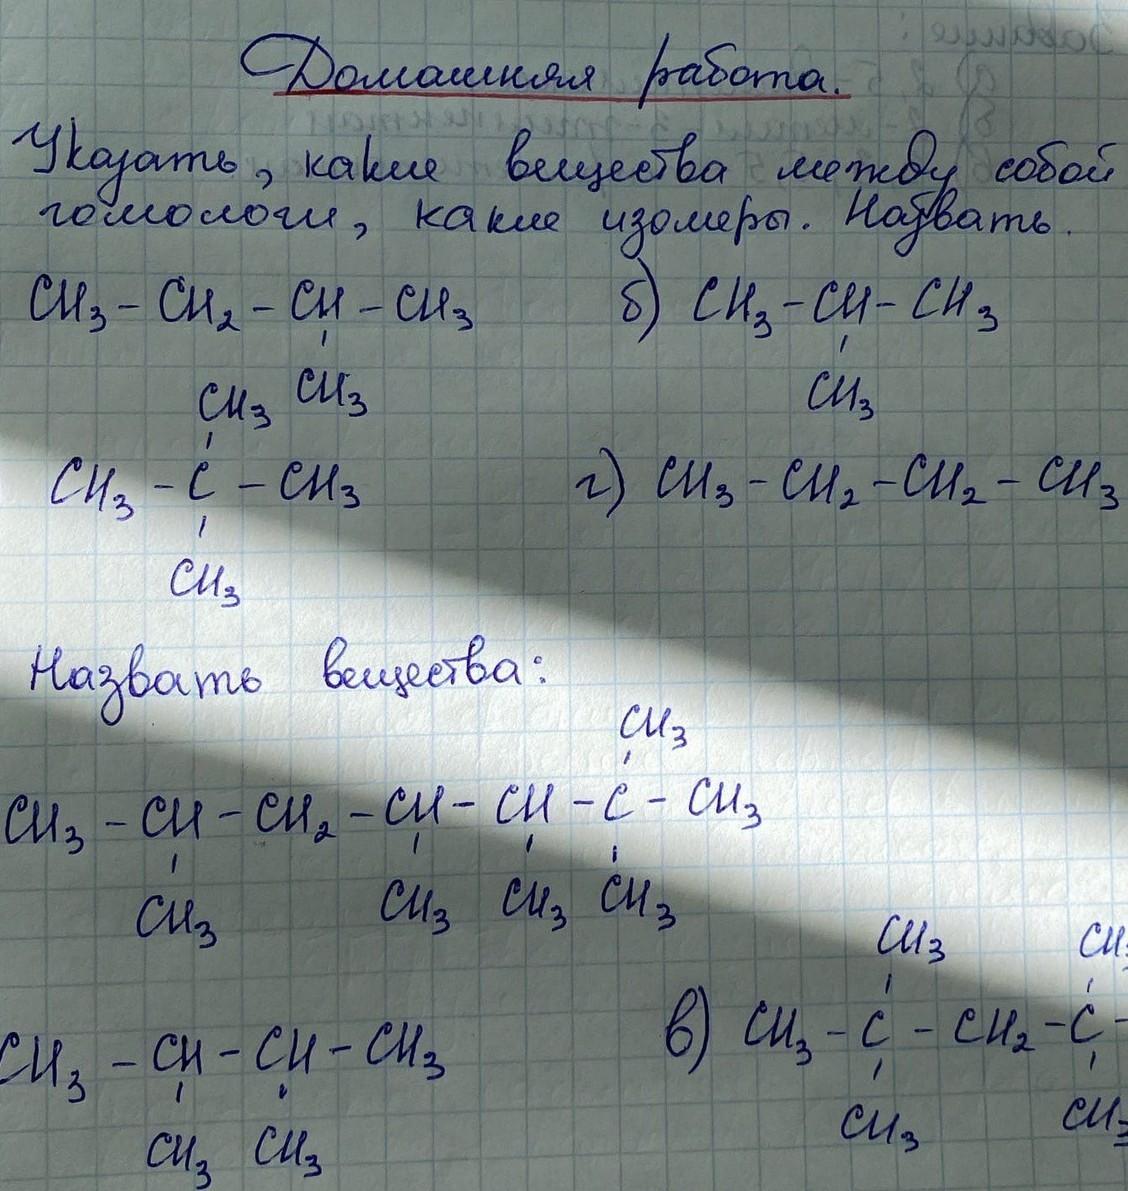 Домашняя работа.
Указать, какие вещества между собой
гомологи, какие изомеры. Назвать.
CH₃ - CH₂ - CH - CH₃
CH₃
б) CH₃ - CH - CH₃
CH₃
CH₃
CH₃ - C - CH₃
CH₃
г) CH₃ - CH₂ - CH₂ - CH₃
Назвать вещества:
CH₃
CH₃ - CH - CH₂ - CH - CH - C - CH₃
CH₃ CH₃ CH₃ CH₃
CH₃ - CH - CH - CH₃
CH₃ CH₃
CH₃ CH₃
в) CH₃ - C - CH₂ - C -
CH₃ CH₃